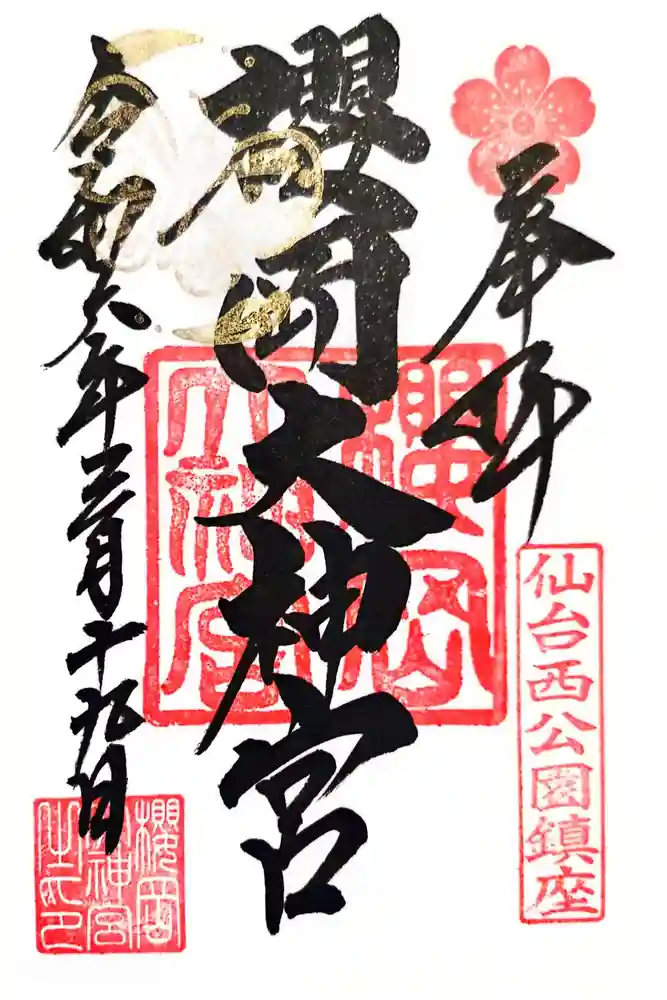 奉拝
仙台西公園鎮座
櫻岡大神宮
櫻岡
大神宮
令和六年三月十九日
櫻岡
大神宮
之印